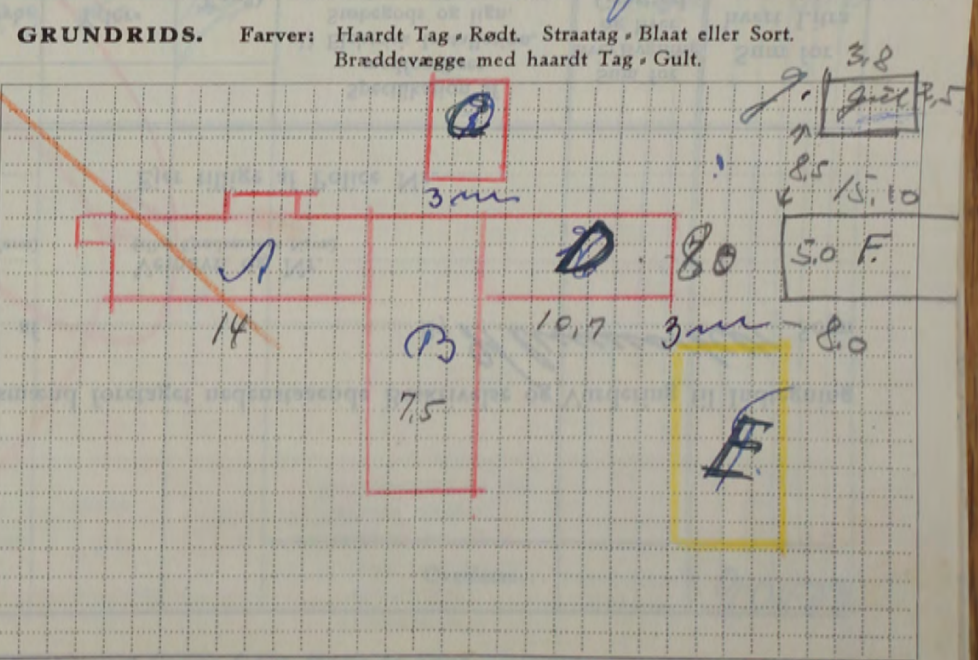 GRUNDRIDS. Farver: Haardt Tag = Rødt. Straatag = Blaat eller Sort.
Bræddevægge med haardt Tag = Gult.
3,8
g. gul 3,5
8,5
15,10
3 m
A D 80 5.0 F.
14 10,7 3 m 8,0
B
7,5
E